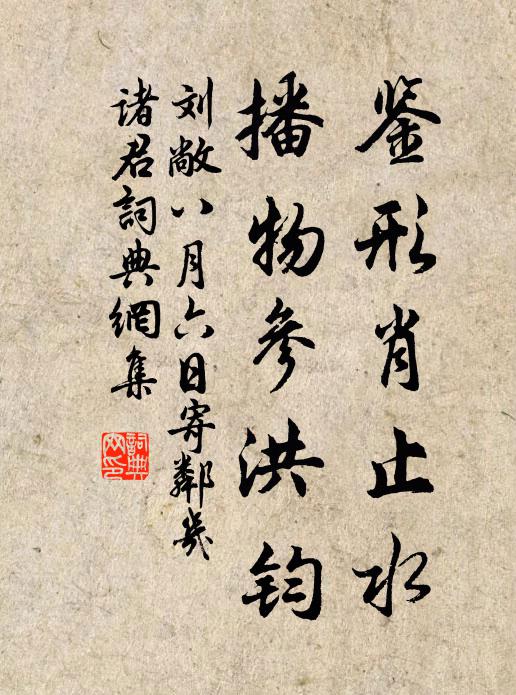 鉴形肖止水
播物参洪钧
刘敞八月六日寄鄰幾
诸君詞典網集
詞典网印